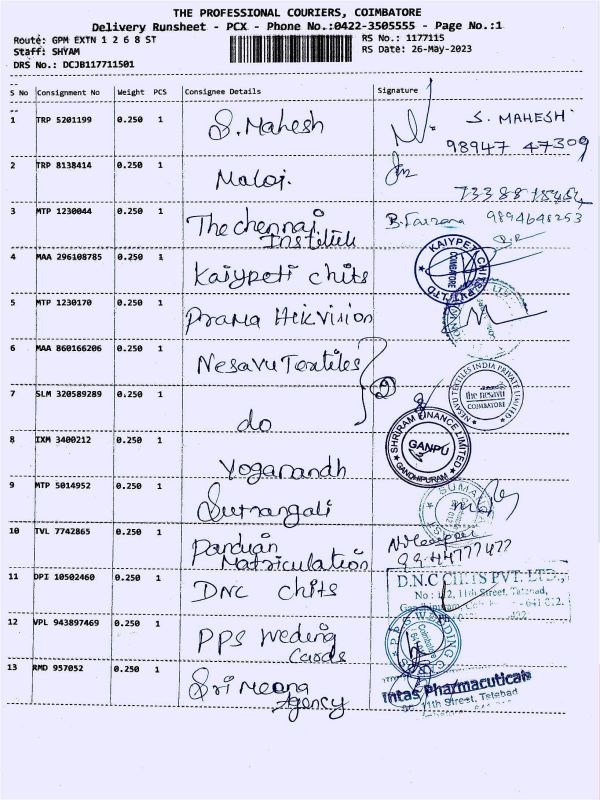 THE PROFESSIONAL COURIERS, COIMBATORE
Delivery Runsheet - PCX - Phone No.:0422-3505555 - Page No.:1
Route: GPM EXTN 1 2 6 8 ST RS No.: 1177115
Staff: SHYAM RS Date: 26-May-2023
DRS No.: DCJB117711501
S No Consignment No Weight PCS Consignee Details Signature
1 TRP 5201199 0.250 1 S. Mahesh S. MAHESH
98947 47309
2 TRP 8138414 0.250 1 Maloj.
3 MTP 1230044 0.250 1 The chennai 9894648253
Institute
4 MAA 296108785 0.250 1 Kaiypeti chits KAIYPETI CHITS PVT LTD COIMBATORE
5 MTP 1230170 0.250 1 Prama Hikvision
6 MAA 860166206 0.250 1 Nesavu Textiles NESAVU TEXTILES INDIA PRIVATE LIMITED
the nesavu
COIMBATORE
7 SLM 320589289 0.250 1 do
8 IXM 3400212 0.250 1 Yoganandh SHRIRAM FINANCE LIMITED
GANPU
GANDHIPURAM
9 MTP 5014952 0.250 1 SUMANGALI
10 TVL 7742865 0.250 1 Pandian 9944777477
Matriculation
11 DPI 10502460 0.250 1 DNC chits D.N.C CHITS PVT. LTD.,
No : 112, 11th Street, Tatabad,
641 012.
12 VPL 943897469 0.250 1 PPS Weding
Cards
13 RMD 957052 0.250 1 Sri Meena Intas Pharmaceutical
Agency 11th Street, Tatabad